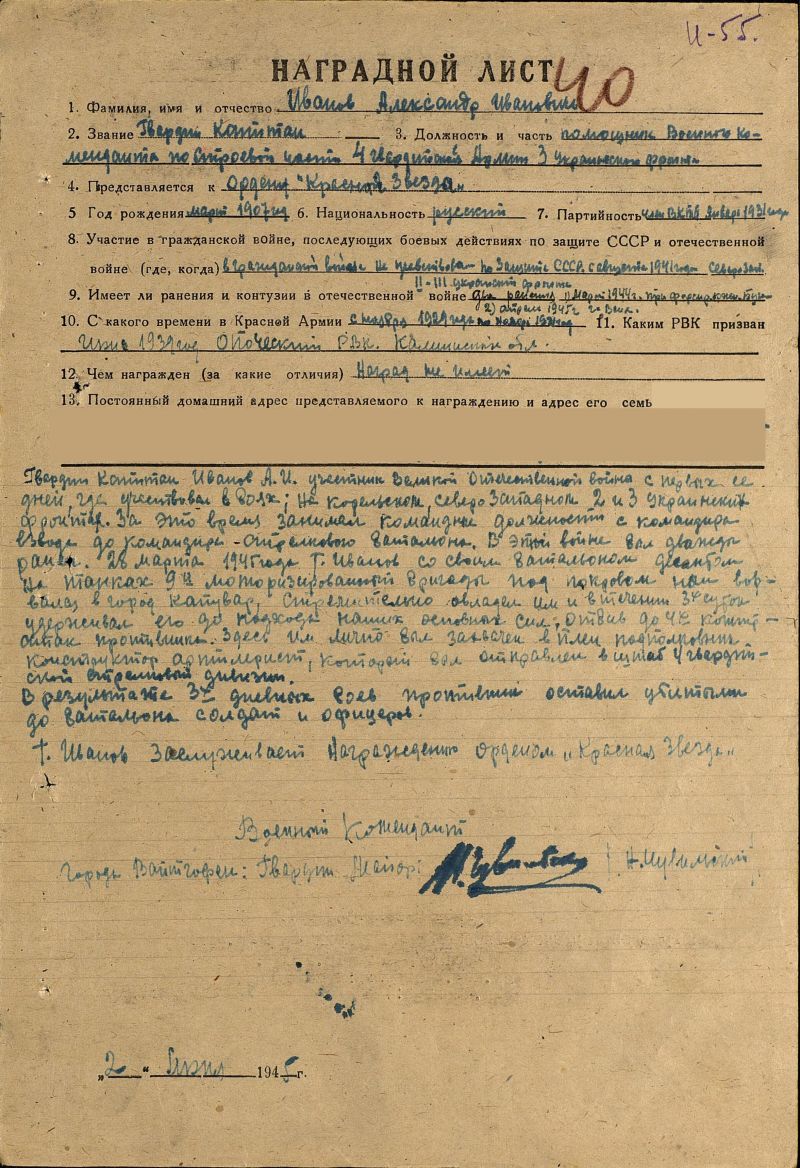 И-55.
НАГРАДНОЙ ЛИСТ
40
1. Фамилия, имя и отчество Иванов Александр Иванович
2. Звание Гвардии Капитан 3. Должность и часть помощник Военного Ко-
менданта по строевой части 4 гвардейской Армии 3 Украинского фронта
4. Представляется к Ордену "Красная Звезда"
5 Год рождения март 1907 год 6. Национальность русский 7. Партийность член ВКПб январь 1931 года
8. Участие в гражданской войне, последующих боевых действиях по защите СССР и отечественной
войне (где, когда) в гражданской войне не участвовал по защите СССР с августа 1941 года Северо Зап.
II-III украинский фронты
9. Имеет ли ранения и контузии в отечественной войне два ранения 1) март 1944 г. при форсир.
2) апрель 1945 г.
10. С какого времени в Красной Армии с ноября 1929 года по ноябрь 1931 год 11. Каким РВК призван
1939 год Опочецкий РВК. Калининской обл.
12. Чем награжден (за какие отличия) Наград не имеет
13. Постоянный домашний адрес представляемого к награждению и адрес его семь
Гвардии Капитан Иванов А.И. участник Великой Отечественной война с первых ее
дней, где участвовал в боях; на северо Западном 2 и 3 Украинских
фронтах. За это время занимал командные должности с командира
взвода до командира стрелкового батальона. В этой войне был дважды
ранен. 28 марта 1945 года т. Иванов со своим батальоном десантом
на танках 9й моторизированной бригады под покровом ночи вор-
вался в город Капувар, стремительно овладел им и в течении 3х суток
удерживал его до подхода наших основных сил, отбив до 4х контр-
атак противника. Здесь им лично был захвачен в плен подполковник
конструктор артиллерист, который был отправлен в штаб 4 гвардей-
ской стрелковой дивизии.
В результате 3х дневных боев противник оставил убитыми
до батальона солдат и офицеров.
т. Иванов заслуживает награждению орденом "Красная Звезда"
Военный Комендант
города Вайтгофен: Гвардии Майор:
"2" 1945 г.